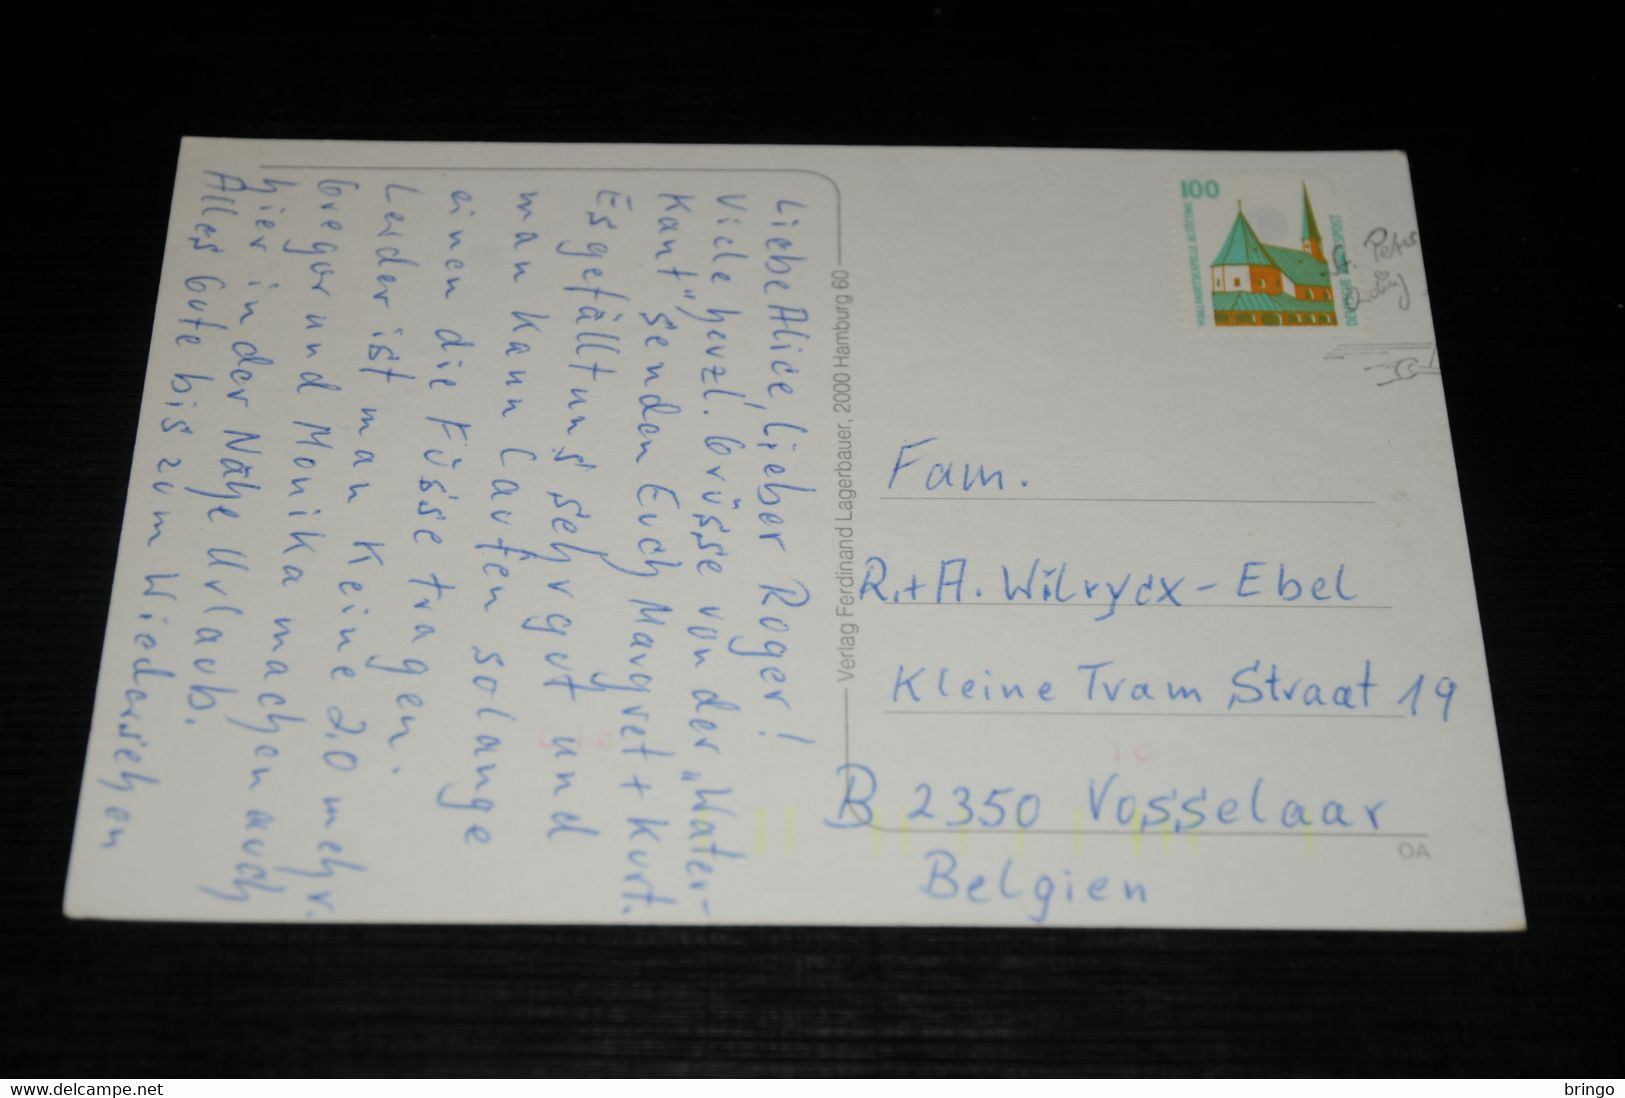 Liebe Alice, Lieber Roger!
Viele herzl. Grüsse von der „Water-
Kant", senden Euch Margret + Kurt.
Es gefällt uns sehr gut und
man kann laufen solange
einen die Füsse tragen.
Leider ist man keine 20 mehr.
Gregor und Monika machen auch
hier in der Nähe Urlaub.
Alles Gute bis zum Wiedersehen
Verlag Ferdinand Lagerbauer, 2000 Hamburg 60
100
WALLFAHRTSKAPELLE ALTÖTTING
DEUTSCHE BUNDESPOST
Fam.
R. + A. Wilrycx - Ebel
Kleine Tram Straat 19
B 2350 Vosselaar
Belgien
OA
delcampe.net
bringo